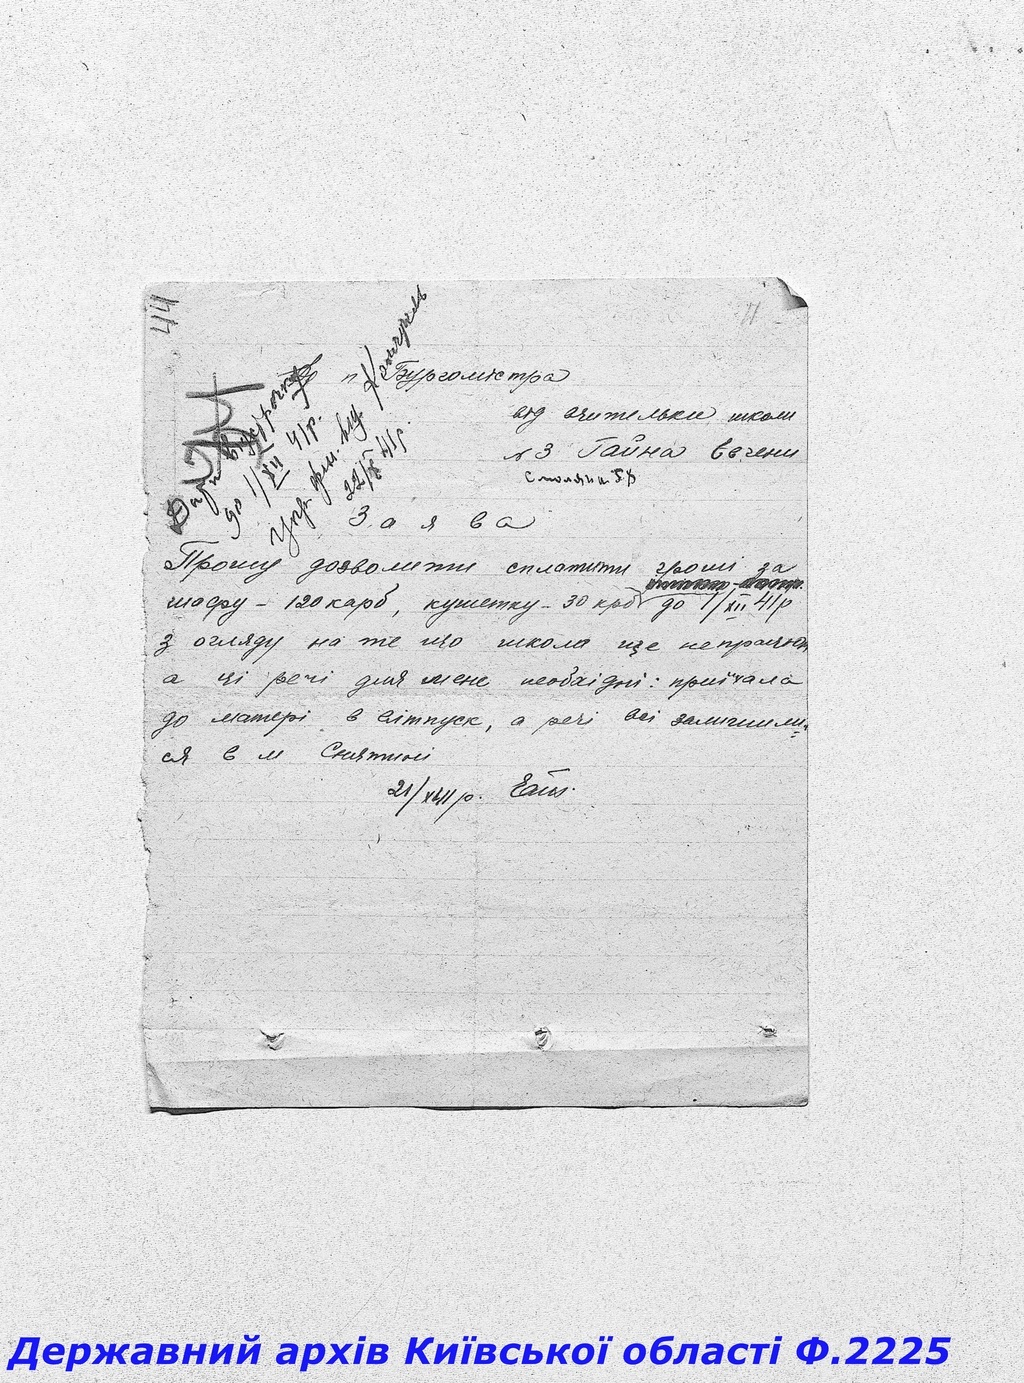 44
11
До п. Бургомістра
від вчительки школи
№3 Гайна Євгени
Смоляна 58
Заява
Прошу дозволити сплатити гроші за
шафу - 120 карб, кушетку - 30 крб до 1/XII 41р
з огляду на те що школа ще не працює
а ці речі для мене необхідні: приїхала
до матері в відпуск, а речі всі залишили-
ся в м Снятині
21/XI 41р.
до 1/XII 41р.
22/X 41р.
Державний архів Київської області Ф.2225